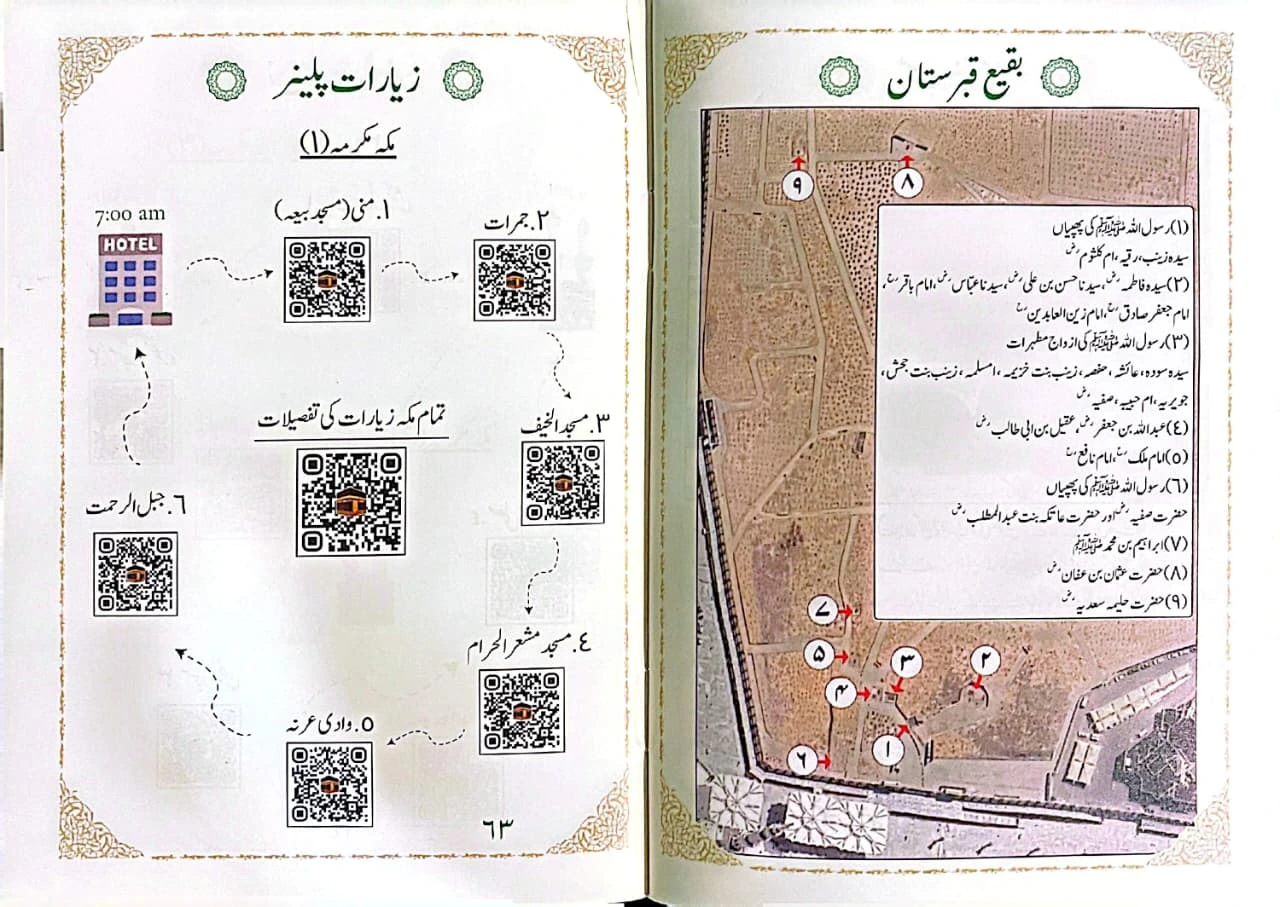 بقیع قبرستان
۹
۸
(۱) رسول اللہ ﷺ کی پھپیاں
سیدہ زینب، رقیہ، ام کلثومؓ
(۲) سیدہ فاطمہؓ، سیدنا حسن بن علیؓ، سیدنا عبّاسؓ، امام باقرؒ،
امام جعفر صادقؒ، امام زین العابدینؒ
(۳) رسول اللہ ﷺ کی ازواج مطہرات
سیدہ سودہ، عائشہ، حفصہ، زینب بنت خزیمہ، امسلمہ، زینب بنت جحش،
جویریہ، ام حبیبہ، صفیہؓ
(٤) عبداللہ بن جعفرؓ، عقیل بن ابی طالبؓ
(۵) امام ملکؒ، امام نافعؒ
(۶) رسول اللہ ﷺ کی پھپیاں
حضرت صفیہؓ اور حضرت عاتکہ بنت عبدالمطلبؓ
(۷) ابراہیم بن محمد ﷺ
(۸) حضرت عثمان بن عفانؓ
(۹) حضرت حلیمہ سعدیہؓ
۷
۵
۳
۲
۴
۱
۶
زیارات پلینر
مکہ مکرمہ (۱)
7:00 am
HOTEL
۱. منی (مسجد بیعہ)
۲. جمرات
۳. مسجد الخیف
تمام مکہ زیارات کی تفصیلات
٤. مسجد مشعر الحرام
۵. وادی عرنہ
۶. جبل الرحمت
٦٣